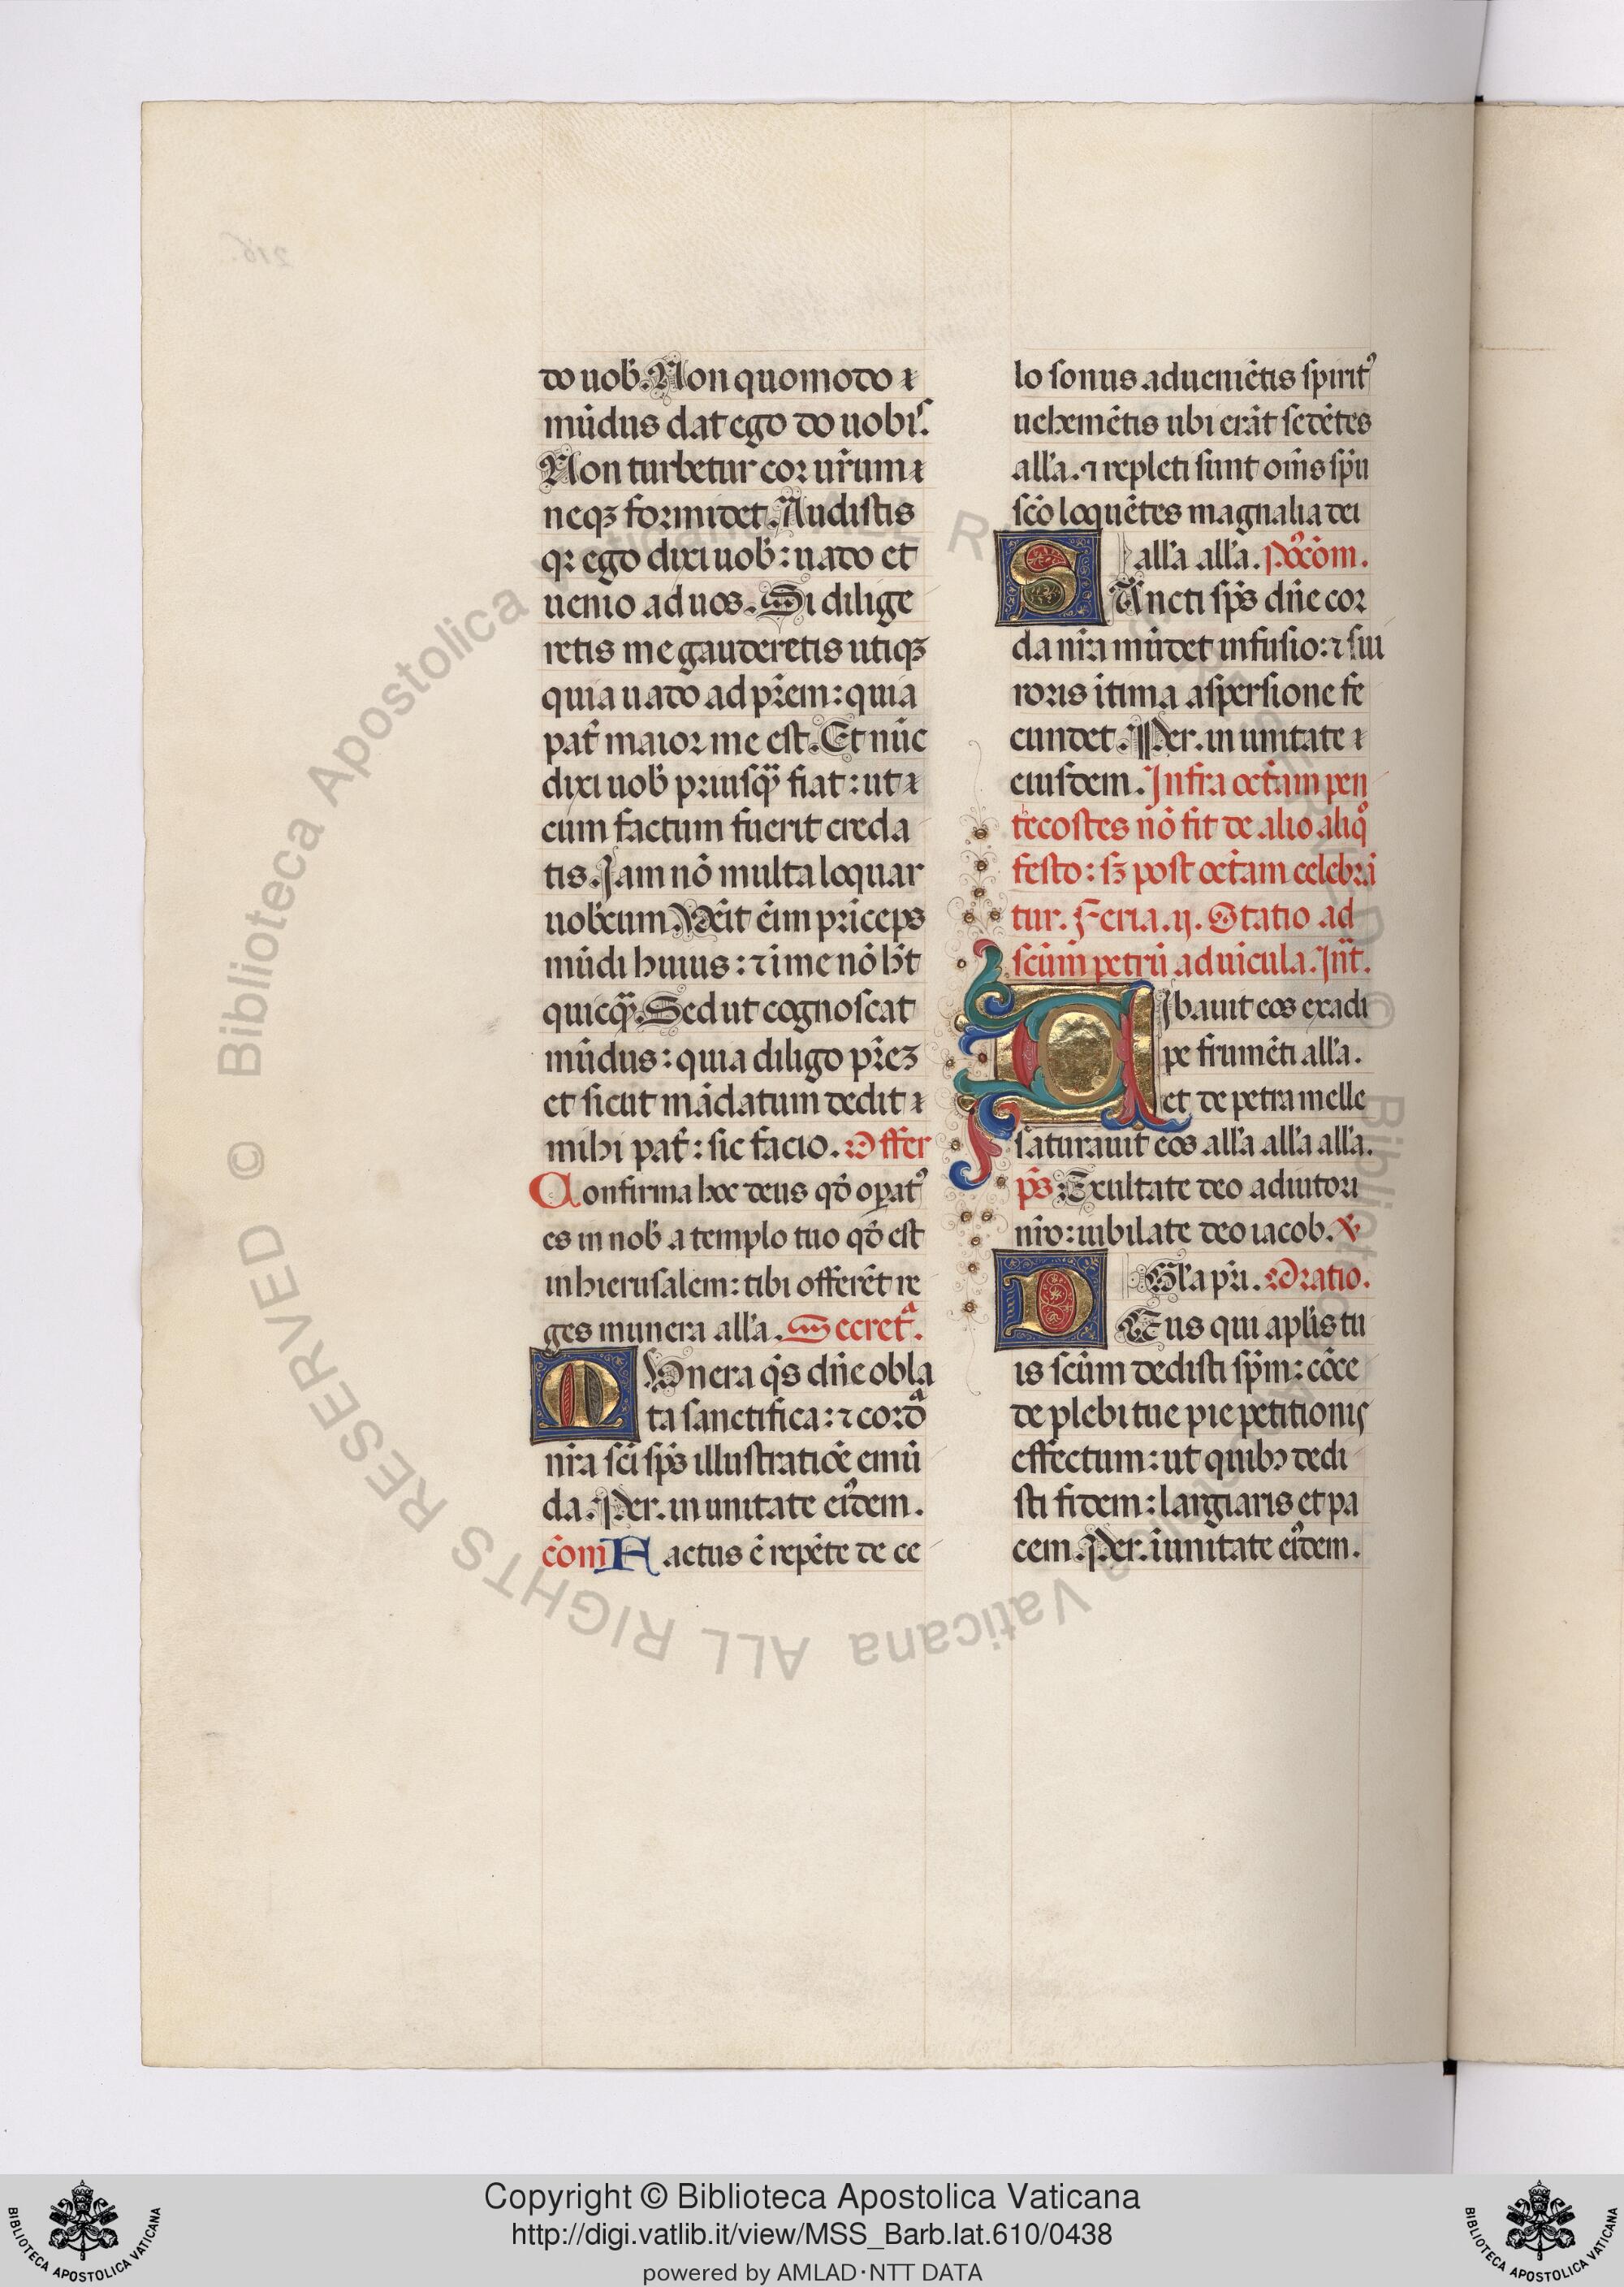 do uob̄. Non quomodo
mūdus dat ego do uobis.
Non turbetur cor ur̄um
neqꝫ formidet. Audistis
qꝛ ego dixi uob̄: uado et
uenio ad uos. Si dilige
retis me gauderetis utiqꝫ
quia uado ad pr̄em: quia
pat̄ maior me est. Et nūc
dixi uob̄ priusqꝫ fiat: ut
cum factum fuerit creda
tis. Jam nō multa loquar
uob̄cum. Uēit eīm prīceps
mūdi huius: ⁊ ī me nō hꝫt
quicqꝫ. Sed ut cognoscat
mūdus: quia diligo pr̄eꝫ
et sicut mādatum dedit
mihi pat̄: sic facio. Offer
Confirma hoc deus qd̄ opatꝰ
es in nob̄ a templo tuo qd̄ est
in hierusalem: tibi offerēt re
ges munera all'a. Secretᵃ.
MUnera qs̄ dn̄e obla
ta sanctifica: ⁊ cordᵃ
nr̄a sc̄i sps̄ illustratiōe emū
da. Per. in unitate eiꝰdem.
cōm Factus ē repēte de ce
lo sonus adueniētis spiritꝰ
uehemētis ubi erāt sedētes
all'a. ⁊ repleti sunt oīs spū
scō loquētes magnalia dei
all'a all'a. Pꝰcōm.
SAncti sps̄ dn̄e cor
da nr̄a mūdet infusio: ⁊ sui
roris ītima aspersione fe
cundet. Per. in unitate
eiusdem. Infra octām pen
tecostes nō fit de alio aliqᵒ
festo: sꝫ post octām celebrā
tur. Feria .ij. Statio ad
scūm petrū ad uīcula. Int̄.
CIbauit eos ex adi
pe frumēti all'a.
et de petra melle
saturauit eos all'a all'a all'a.
ps̄. Exultate deo adiutori
nr̄o: iubilate deo iacob. ℣
Gl'a pr̄i. Oratio.
DEus qui apl'is tu
is scūm dedisti sp̄m: cōce
de plebi tue pie petitionis
effectum: ut quibꝫ dedi
sti fidem: largiaris et pa
cem. Per. ī unitate eiꝰdem.
© Biblioteca Apostolica Vaticana ALL RIGHTS RESERVED
Copyright © Biblioteca Apostolica Vaticana
http://digi.vatlib.it/view/MSS_Barb.lat.610/0438
powered by AMLAD·NTT DATA
BIBLIOTECA APOSTOLICA VATICANA
BIBLIOTECA APOSTOLICA VATICANA